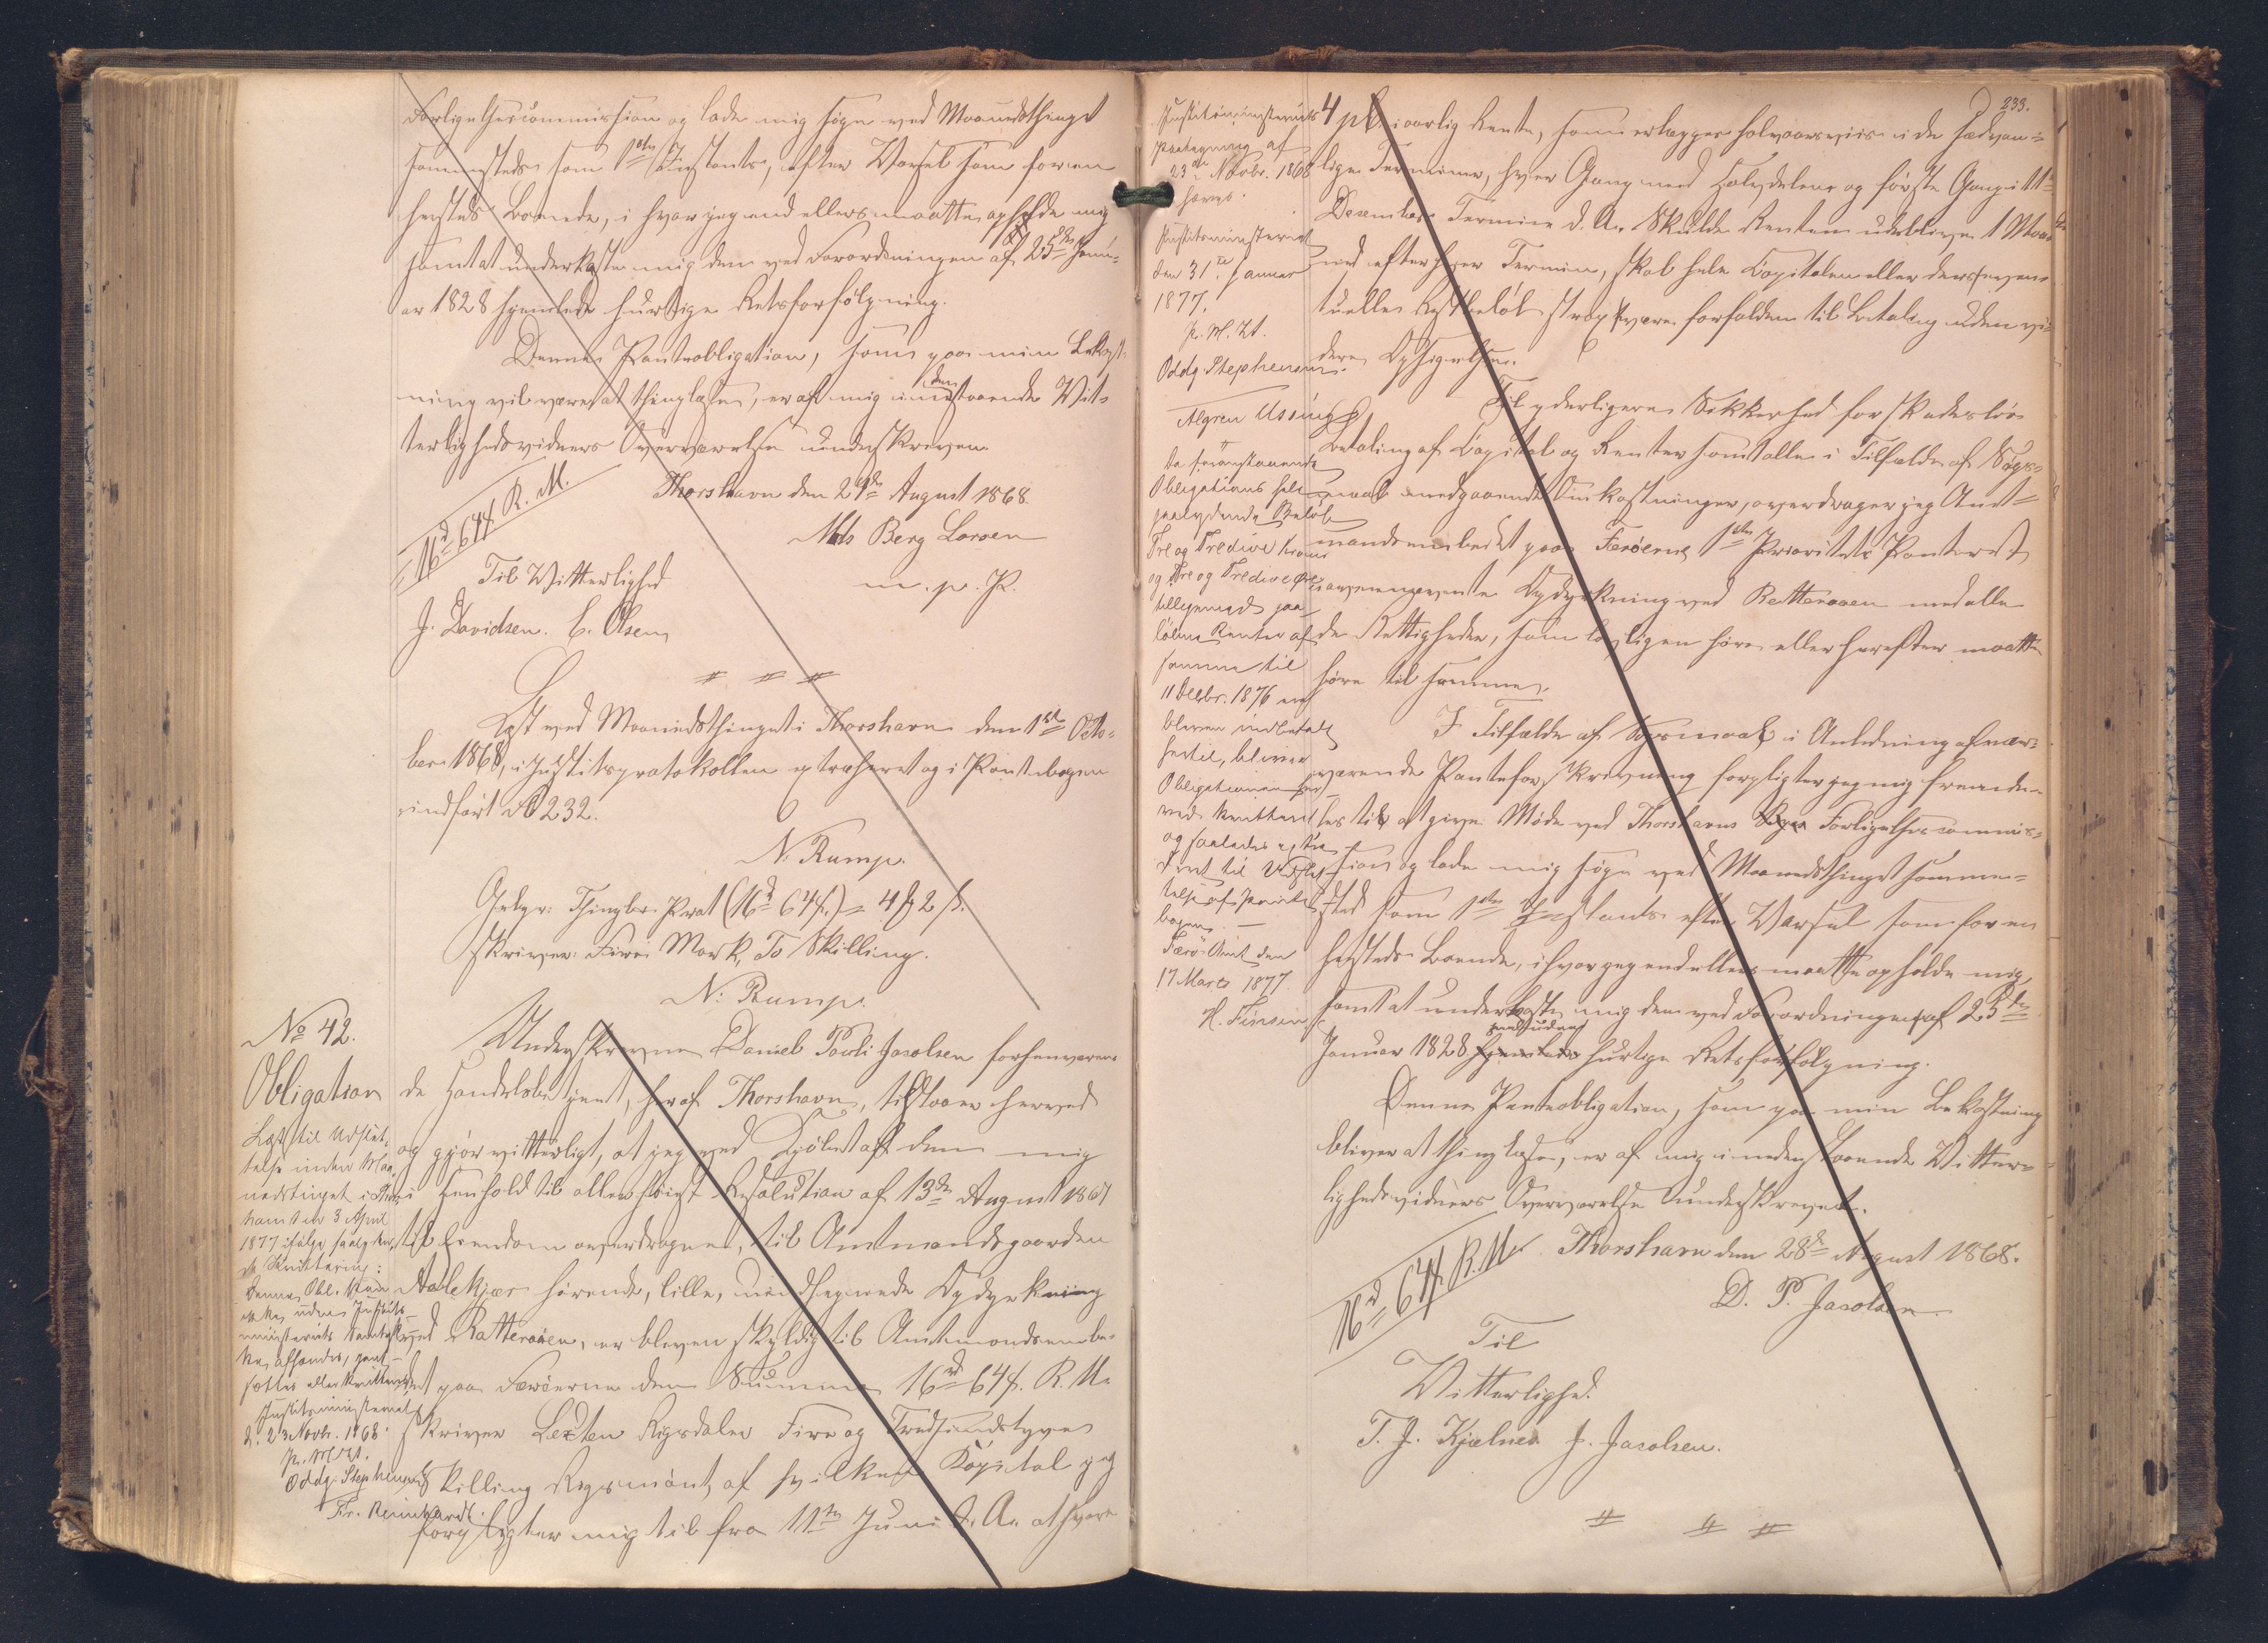 Forligelsescommission og lade mig søge ved Maanedsthinget
sammesteds som 1ste Instants, efter Varsel som for en
hersteds Boende, i hvor jeg end ellers maatte opholde mig
samt at underkaste mig den ved Forordningen af 25de Janu-
ar 1828 hjemlede hurtige Retsforfølgning.
Denne Panteobligation, som paa min Bekost-
ning vil være at thinglæse, er af mig i nedenstaaende Vit-
terlighedsvidners Overværelse underskreven.
Thorshavn den 24de August 1868.
16rd 64 s. R. M.
Mds Berg Larsen
m. p. P.
Til Vitterlighed
J. Davidsen. C. Olsen
Læst ved Maanedsthinget i Thorshavn den 1ste Octo-
ber 1868, i Justitsprotokollen extraheret og i Pantebogen
indført No 232.
N. Rump.
Gebyr: Thingl. Prot (16rd 64 s.) = 4 M 2 s.
skriver: Fire Mark, To Skilling.
N. Rump.
No 42.
Obligation
Læst til Udslet-
telse inden Maa-
nedstinget i Thors-
havn den 3 April
1877 ifølge saalyden-
de Kvittering:
Denne Obl. kan
ikke uden Justits-
ministeriets Samtykke
afhændes, pant-
sættes eller kvitteres
Justitsministeriet
d. 23 Novbr. 1868.
p. M. V.
Oddg. Stephensen
Fr. Reinhardt.
Underskrevne Daniel Pauli Jacobsen forhenværen-
de Handelsbetjent, heraf Thorshavn, tilstaaer herved
og gjør vitterligt, at jeg ved Kjøbet af den mig
i Henhold til allerhøiest Resolution af 13de August 1867
til Eiendom overdragne, til Amtmandsgaarden
Aalekjær hørende, lille, indhegnede Opdyrkning
ved Ratteraaen, er bleven skyldig til Amtmandsembe-
det paa Færøerne den Summa 16rd 64 s. R. M.
skriver Sexten Rigsdaler Fire og Tredsindstyve
Skilling Rigsmønt, af hvilken Kapital jeg
forpligter mig til fra 11te Juni d. A. at svare
233.
Justitsministeriets
Paategning af
23de Novbr. 1868
hæves.
Justitsministeriet
den 31te Januar
1877.
p. M. V.
Oddg. Stephensen.
Algreen Ussing
Da foranstaaende
Obligations
paalydende Beløb
Tre og Tredive Kroner
og Tre og Tredive Øre
tilligemed paa-
løbne Renter af
samme til
11 Decbr. 1876 er
bleven indbetalt
hertil, bliver
Obligationen her-
ved kvitteret
og saaledes extra-
deret til Udslet-
telse af Pante-
bogen. —
Færø Amt den
17 Marts 1877.
H. Finsen
4 pCt. aarlig Rente, som erlægges halvaarsviis i de sædvan-
lige Terminer, hver Gang med Halvdelen og første Gang i 11te
December Termin d. A. Skulde Renten udeblive 1 Maa-
ned efter hver Termin, skal hele Capitalen eller dens even-
tuelle Restbeløb strax være forfalden til Betaling uden vi-
dere Opsigelse.
Til yderligere Sikkerhed for skadesløs
Betaling af Capital og Renter samt alle i Tilfælde af Søgs-
maal medgaaende Omkostninger, overdrager jeg Amt-
mandsembedet paa Færøerne 1ste Prioritets Panteret
i ovennævnte Opdyrkning ved Ratteraaen med alle
de Rettigheder, som lovligen høre eller herefter maatte
høre til samme.
I Tilfælde af Søgsmaal i Anledning af nær-
værende Panteforskrivning forpligter jeg mig fremde-
les til at give Møde ved Thorshavns Forligelsescommis-
sion og lade mig søge ved Maanedsthinget samme-
sted som 1ste Instants efter Varsel som for en
hersteds Boende, i hvor jeg end ellers maatte opholde mig,
samt at underkaste mig den ved Forordningen af 25de
Januar 1828 hjemlede hurtige Retsforfølgning.
Denne Panteobligation, som paa min Bekostning
bliver at thinglæse, er af mig i nedenstaaende Vitter-
lighedsvidners Overværelse underskrevet.
Thorshavn den 28de August 1868.
16rd 64 s. R. M.
D. P. Jacobsen
Til
Vitterlighed.
T. J. Kjølner J. Jacobsen.